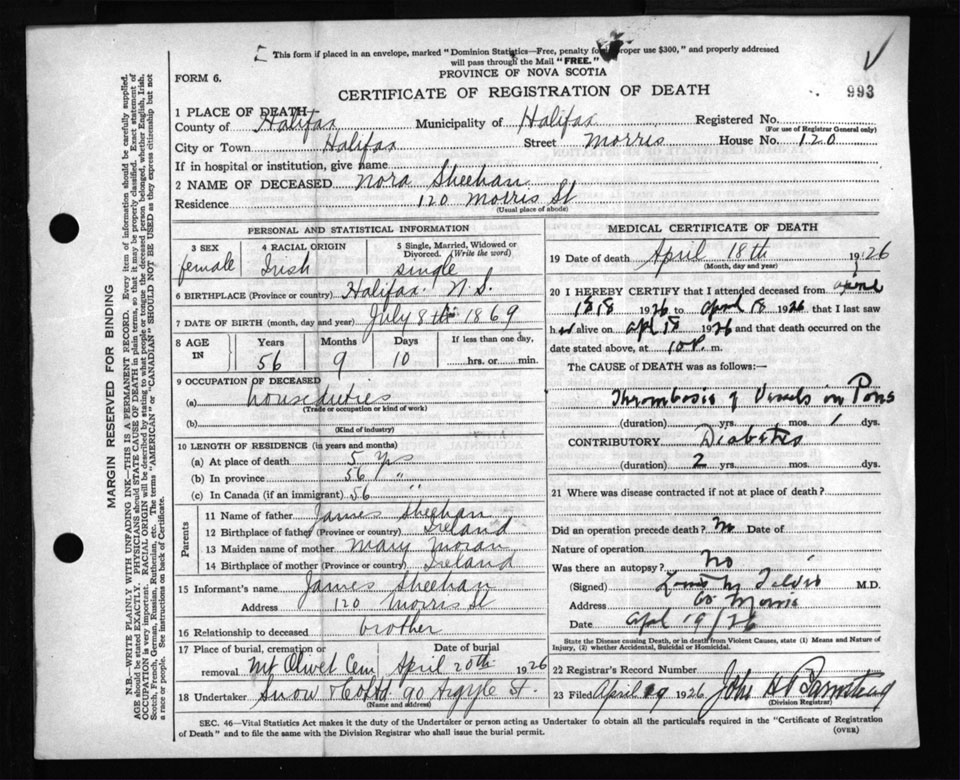 This form if placed in an envelope, marked "Dominion Statistics—Free, penalty for proper use $300," and properly addressed
will pass through the Mail "FREE."
FORM 6.
PROVINCE OF NOVA SCOTIA
CERTIFICATE OF REGISTRATION OF DEATH
993
1 PLACE OF DEATH
County of Halifax Municipality of Halifax Registered No.
(For use of Registrar General only)
City or Town Halifax Street Morris House No. 120
If in hospital or institution, give name
2 NAME OF DECEASED Nora Sheehan
Residence 120 Morris St
(Usual place of abode)
PERSONAL AND STATISTICAL INFORMATION
3 SEX female
4 RACIAL ORIGIN Irish
5 Single, Married, Widowed or Divorced. (Write the word) single
6 BIRTHPLACE (Province or country) Halifax N.S.
7 DATE OF BIRTH (month, day and year) July 8th 1869
8 AGE IN Years 56 Months 9 Days 10 If less than one day, hrs. or min.
9 OCCUPATION OF DECEASED
(a) house duties
(Trade or occupation or kind of work)
(b)
(Kind of industry)
10 LENGTH OF RESIDENCE (in years and months)
(a) At place of death 5 yrs
(b) In province 56 "
(c) In Canada (if an immigrant) 56 "
Parents
11 Name of father James Sheehan
12 Birthplace of father (Province or country) Ireland
13 Maiden name of mother Mary Moran
14 Birthplace of mother (Province or country) Ireland
15 Informant's name James Sheehan
Address 120 Morris St
16 Relationship to deceased brother
17 Place of burial, cremation or removal Mt Olivet Cem Date of burial April 20th 1926
18 Undertaker Snow & Co Ltd 90 Argyle St.
(Name and address)
MEDICAL CERTIFICATE OF DEATH
19 Date of death April 18th 1926
(Month, day and year)
20 I HEREBY CERTIFY that I attended deceased from April
18 1926 to April 18 1926 that I last saw
her alive on Apl 18 1926 and that death occurred on the
date stated above, at 10 P. m.
The CAUSE of DEATH was as follows:—
Thrombosis of Vessels in Pons
(duration) yrs. mos. 1 dys.
CONTRIBUTORY Diabetes
(duration) 2 yrs. mos. dys.
21 Where was disease contracted if not at place of death?
Did an operation precede death? No Date of
Nature of operation
Was there an autopsy? No
(Signed) M.D.
Address Morris
Date Apl 19/26
State the Disease causing Death, or in death from Violent Causes, state (1) Means and Nature of
Injury, (2) whether Accidental, Suicidal or Homicidal.
22 Registrar's Record Number
23 Filed April 19 1926 John H
(Division Registrar)
SEC. 46—Vital Statistics Act makes it the duty of the Undertaker or person acting as Undertaker to obtain all the particulars required in the "Certificate of Registration
of Death" and to file the same with the Division Registrar who shall issue the burial permit.
(OVER)
MARGIN RESERVED FOR BINDING
N.B.—WRITE PLAINLY WITH UNFADING INK—THIS IS A PERMANENT RECORD. Every item of information should be carefully supplied.
AGE should be stated EXACTLY. PHYSICIANS should STATE CAUSE OF DEATH in plain terms, so that it may be properly classified. Exact statement of
OCCUPATION is very important. RACIAL ORIGIN will be described by stating to what people or tongue the deceased person belonged, whether English, Irish,
Scotch, French, German, Russian, Ruthenian, etc. The terms "AMERICAN" or "CANADIAN" SHOULD NOT BE USED as they express citizenship but not
a race or people. See instructions on back of Certificate.